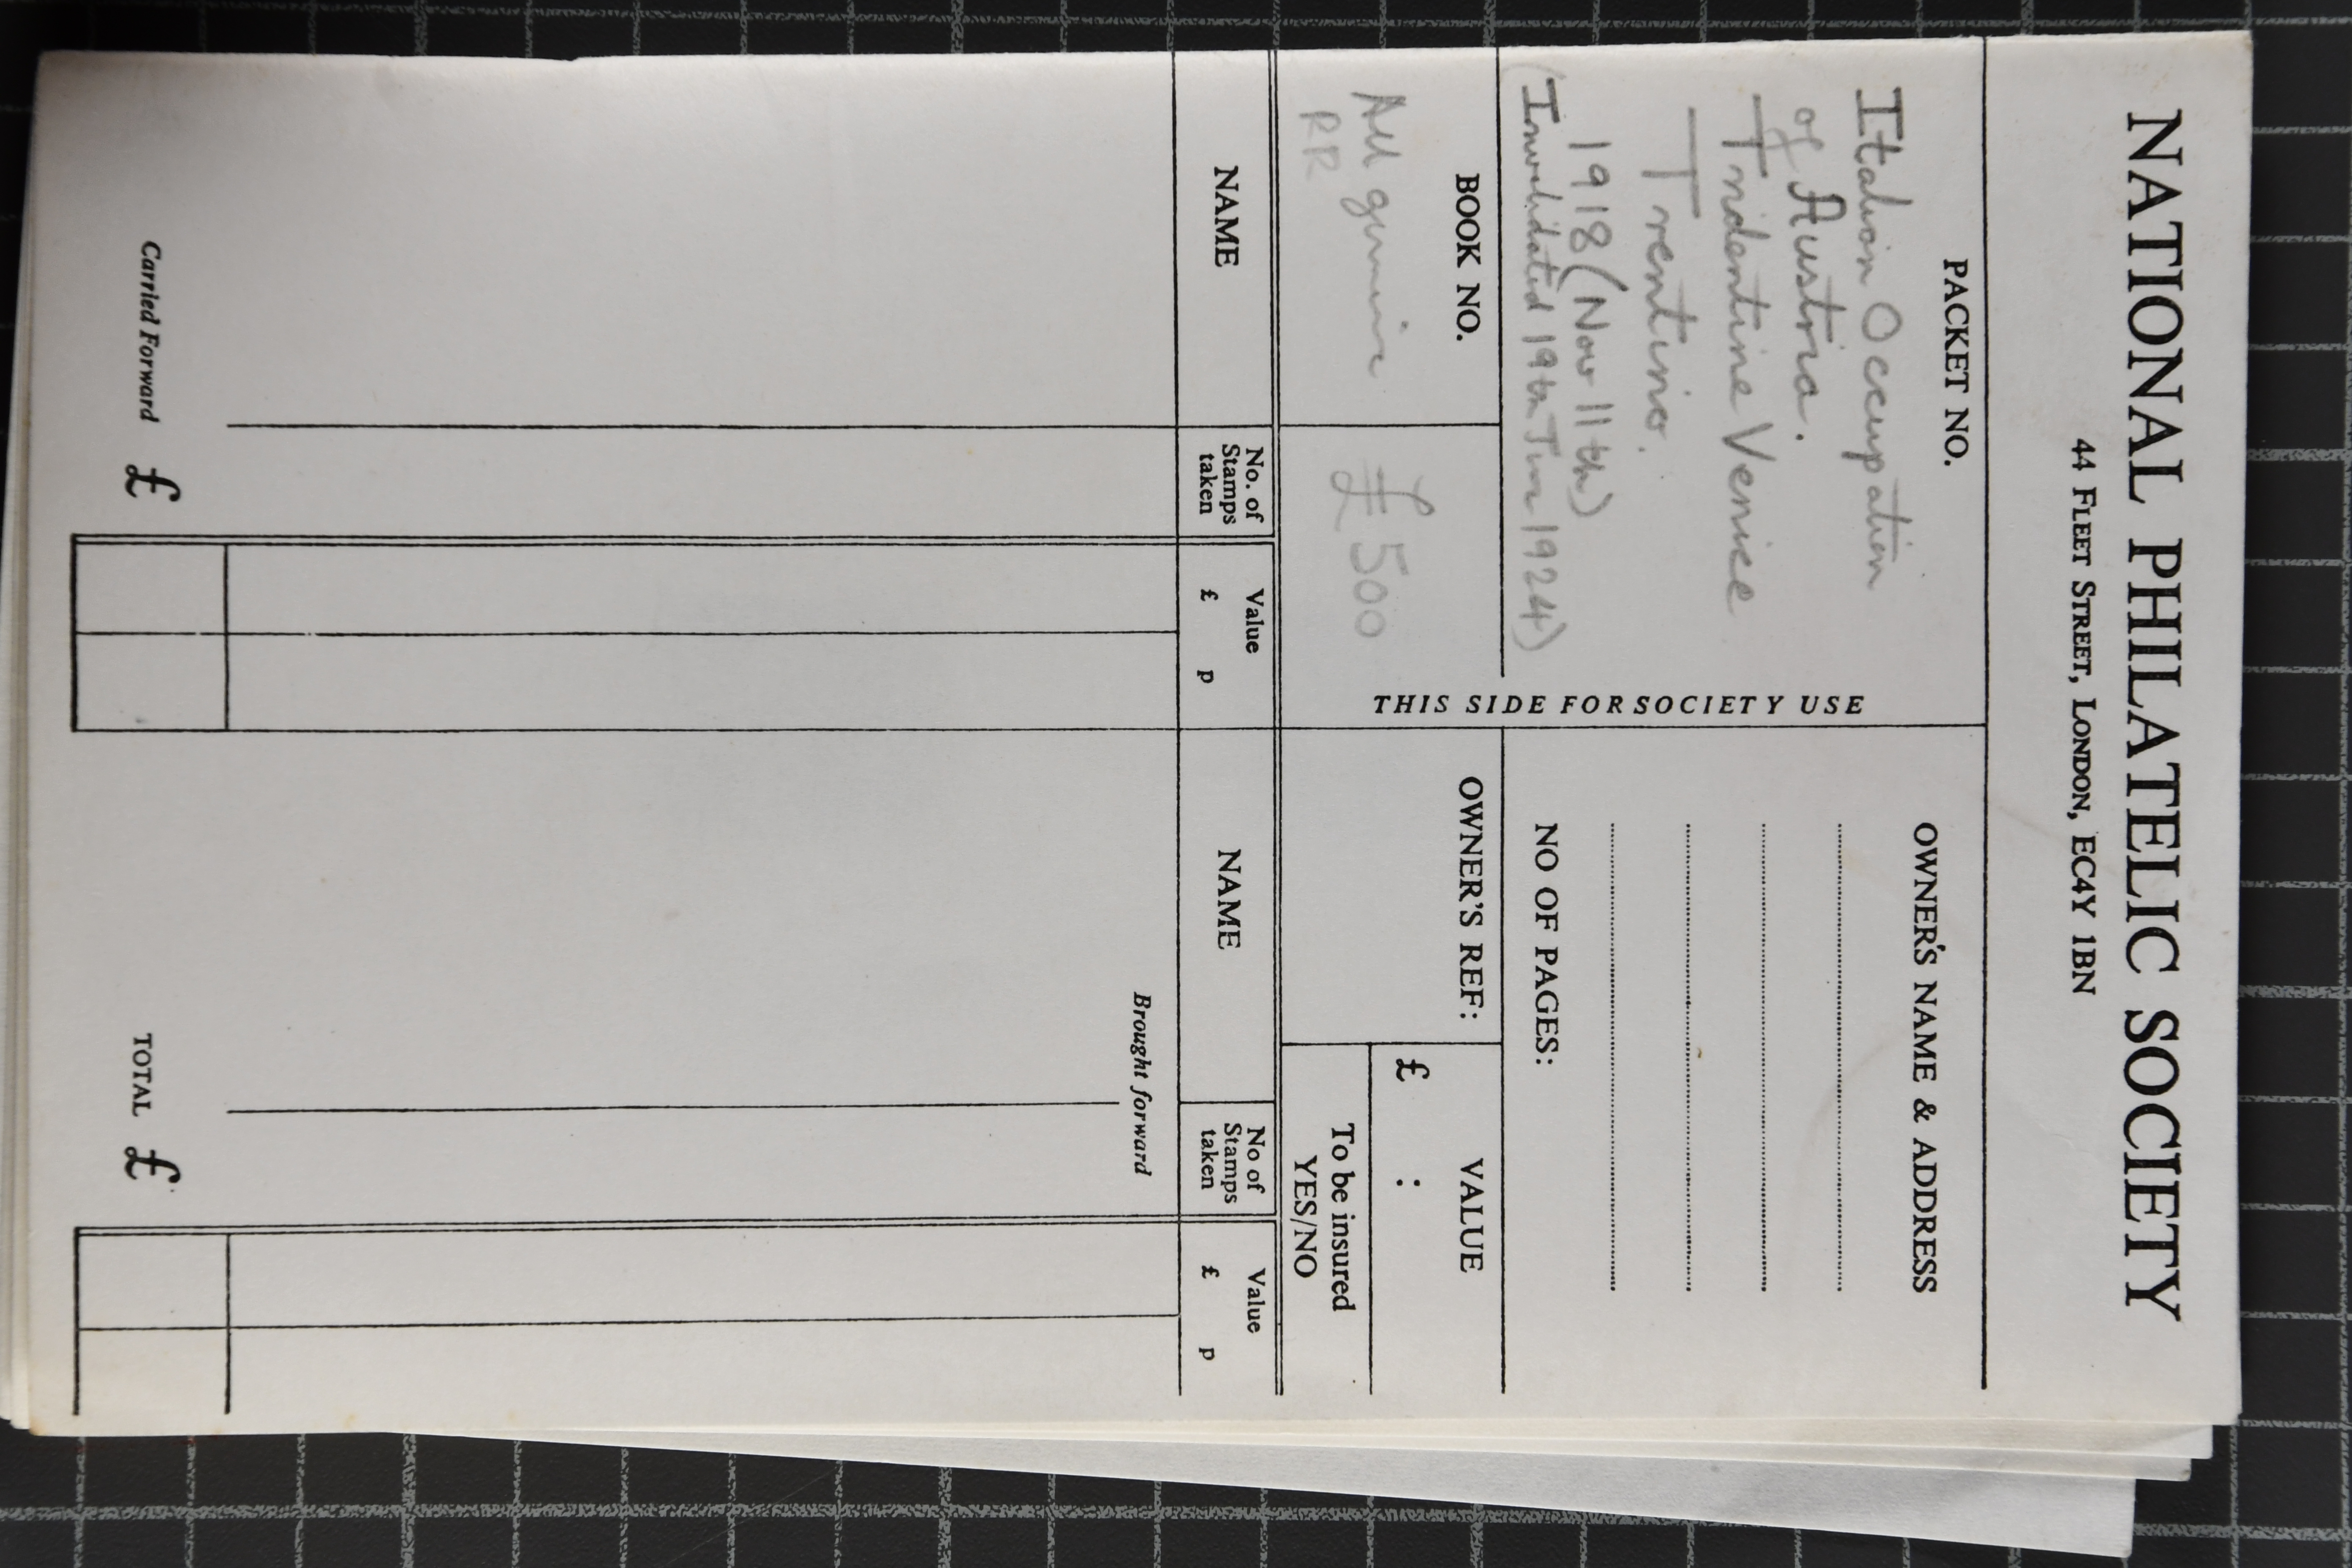 NATIONAL PHILATELIC SOCIETY
44 FLEET STREET, LONDON, EC4Y 1BN
PACKET NO.
Italian Occupation
of Austria.
Tridentine Venice
Trentino.
1918 (Nov 11th)
(Invalidated 19th Jun 1924)
THIS SIDE FOR SOCIETY USE
OWNER'S NAME & ADDRESS
NO OF PAGES:
BOOK NO.
All genuine
RR
£500
OWNER'S REF:
VALUE
£ :
To be insured
YES/NO
NAME
No. of
Stamps
taken
Value
£ p
NAME
No of
Stamps
taken
Value
£ p
Brought forward
Carried Forward £
TOTAL £